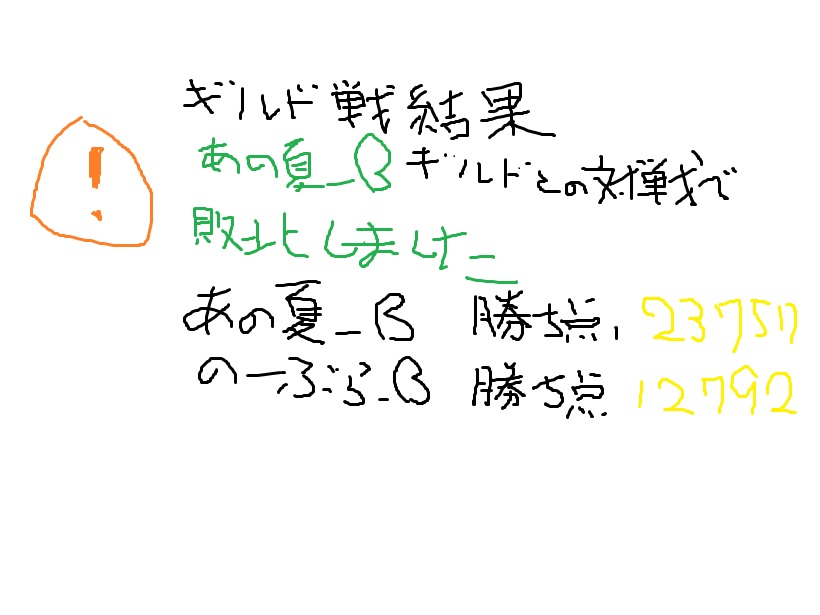 !
ギルド戦結果
あの夏_Bギルドとの対戦で
敗北しました
あの夏_B 勝ち点, 23751
のーぶら_B 勝ち点 12792